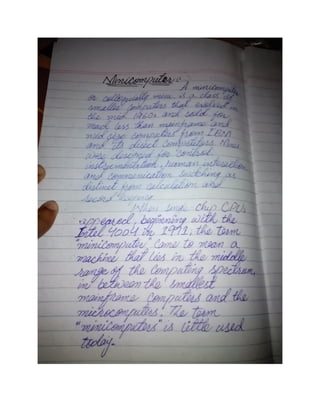 Minicomputer:
A minicomputer
or colloquially mini is a class of
smaller computers that evolved in
the mid 1960s and sold for
much less than mainframe and
mid size computers from IBM
and its direct competitors. Minis
were designed for control,
instrumentation, human interaction
and communication switching as
distinct from calculation and
record keeping.
When single chip CPUs
appeared, beginning with the
Intel 4004 in 1971, the term
"minicomputer" came to mean a
machine that lies in the middle
range of the computing spectrum,
in between the smallest
mainframe computers and the
microcomputers. The term
"minicomputers" is little used
today.